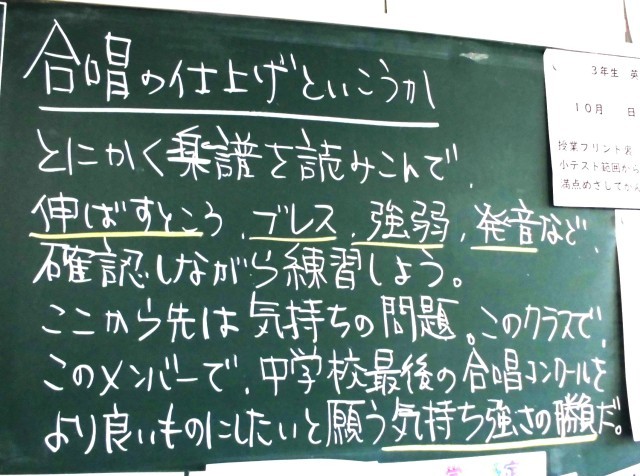 合唱の仕上げといこうか
とにかく楽譜を読みこんで、
伸ばすところ、ブレス、強弱、発音など、
確認しながら練習しよう。
ここから先は気持ちの問題。このクラスで、
このメンバーで、中学校最後の合唱コンクールを
より良いものにしたいと願う気持ち強さの勝負だ。
3年生 英
10月 日
授業プリント
小テスト範囲から
満点めざしてがん